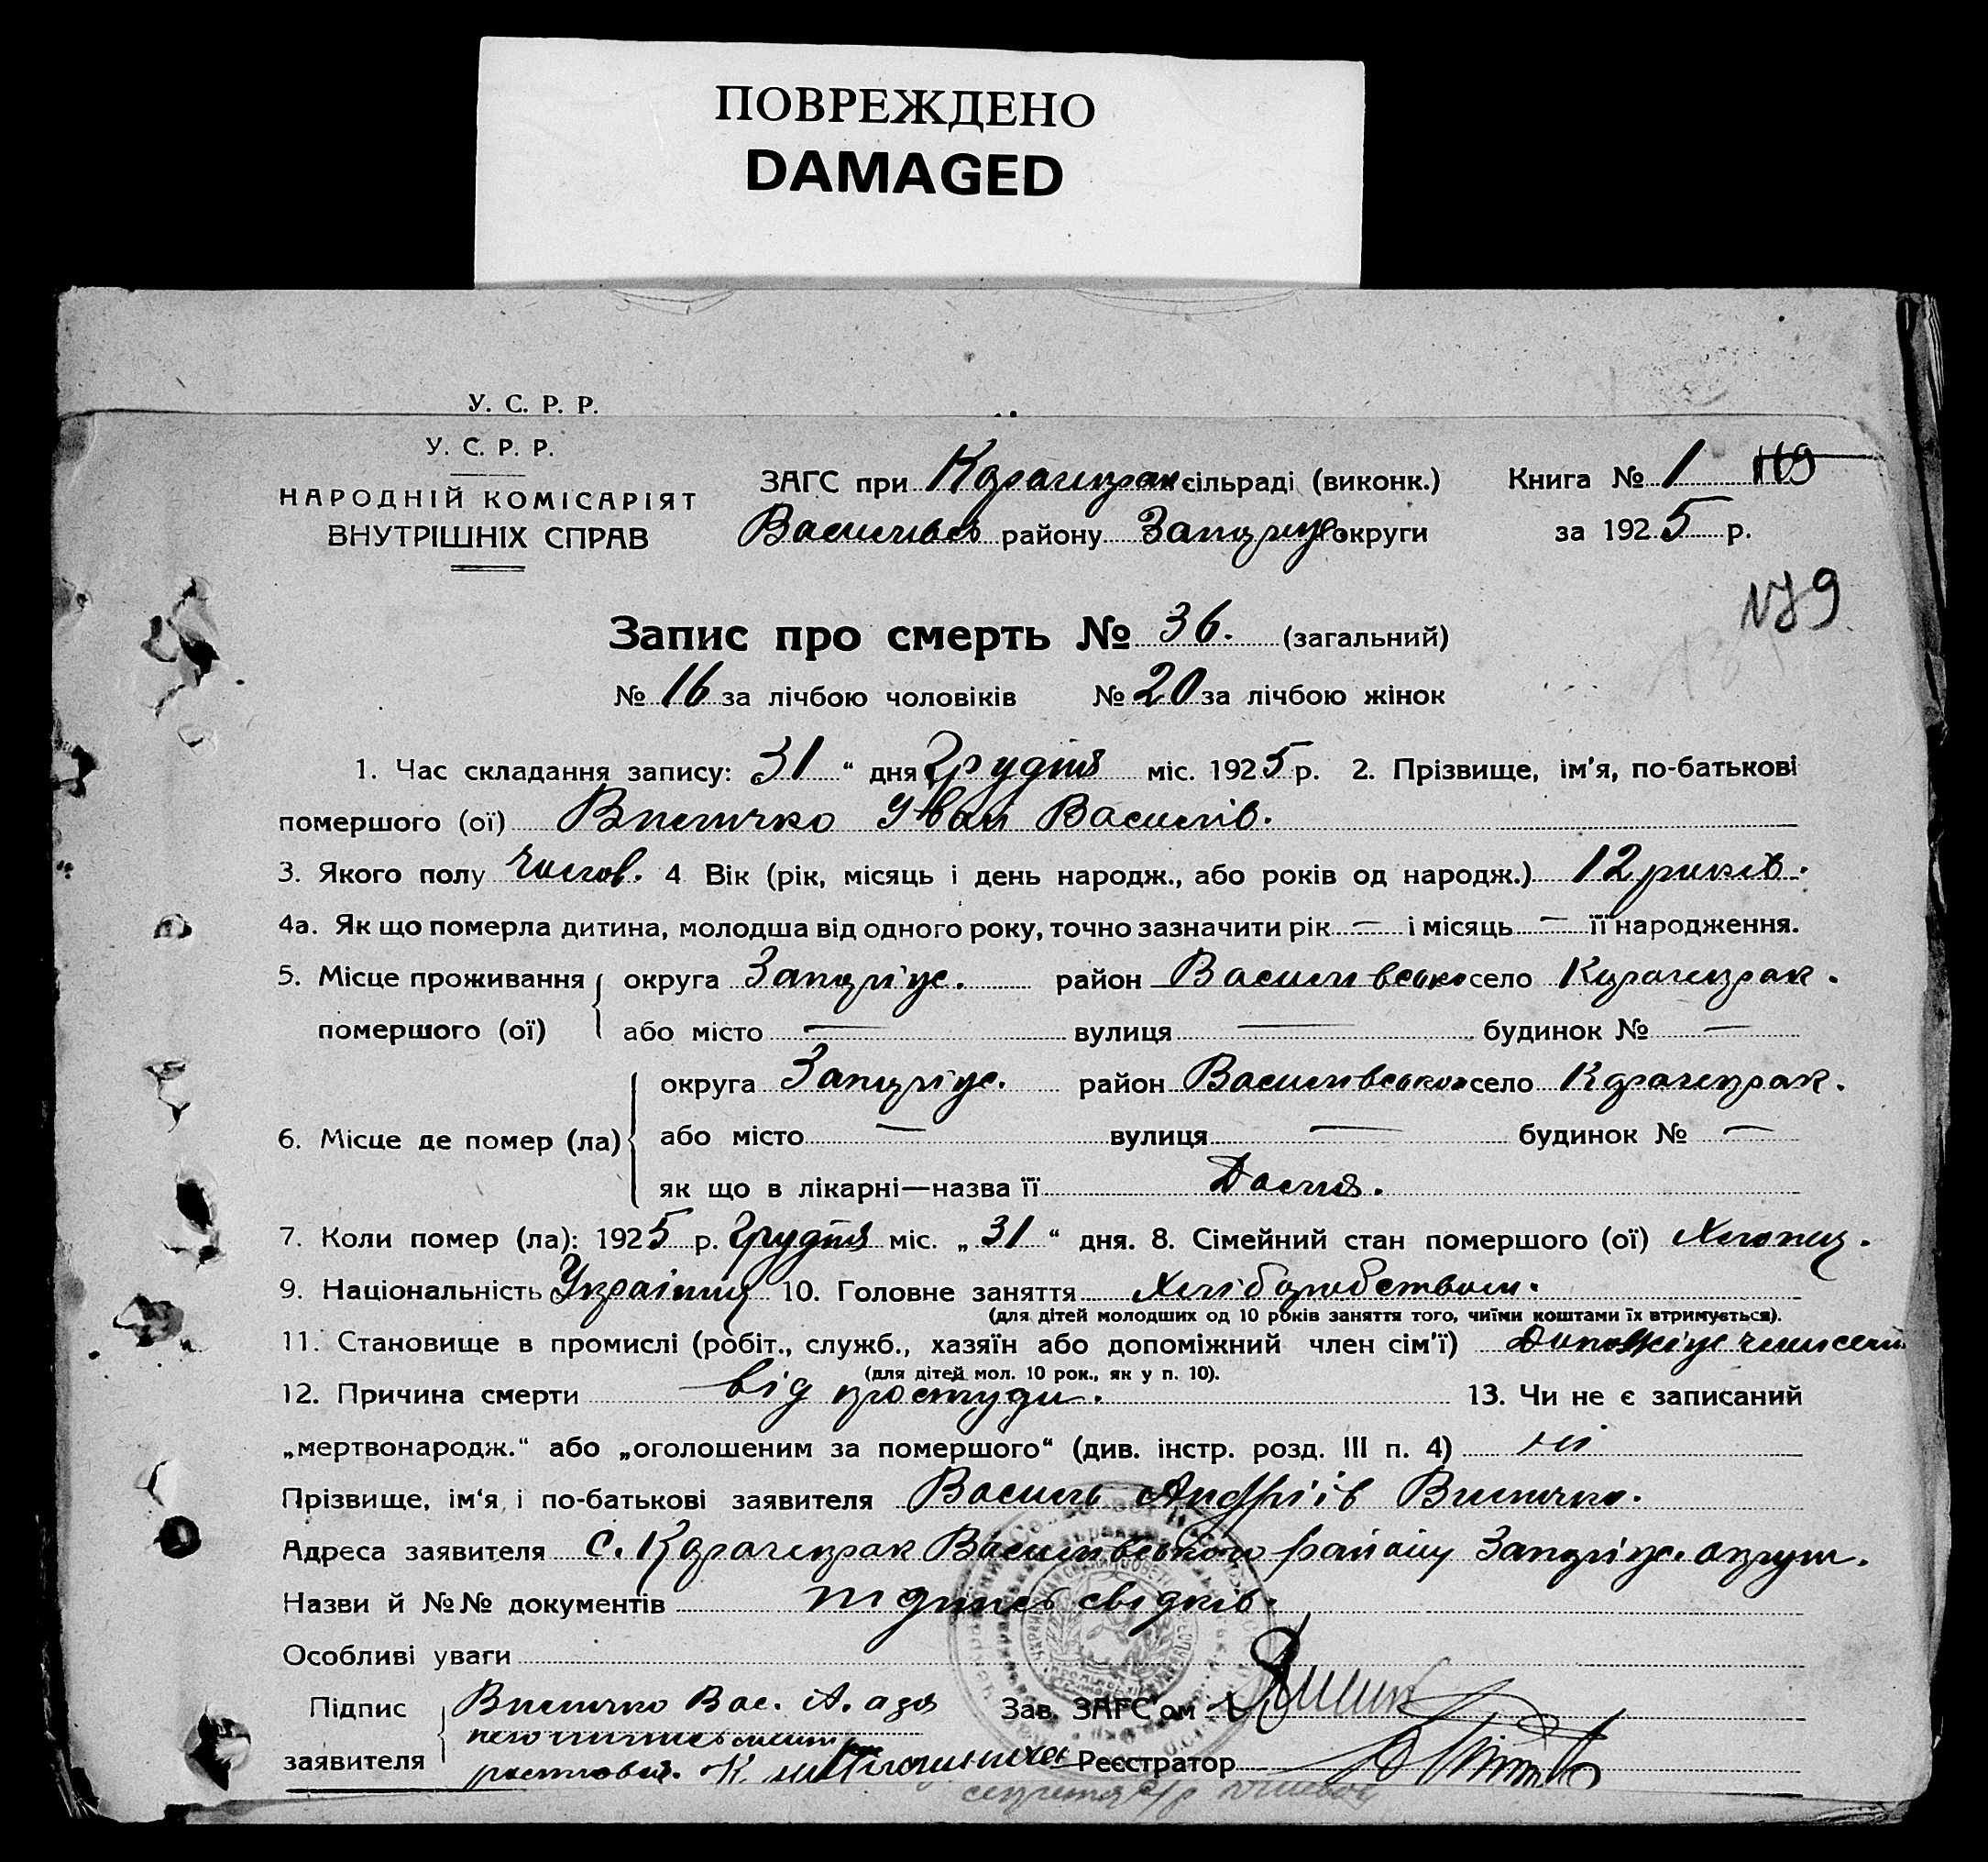 ПОВРЕЖДЕНО
DAMAGED
У. С. Р. Р.
У. С. Р. Р.
НАРОДНІЙ КОМІСАРІЯТ
ВНУТРІШНІХ СПРАВ
ЗАГС при сільраді (виконк.) Книга № 1
району округи за 1925 р.
Запис про смерть № 36. (загальний)
№ 16 за лічбою чоловіків № 20 за лічбою жінок
1. Час складання запису: 31 “ дня Грудня міс. 1925 р. 2. Прізвище, ім'я, по-батькові
помершого (ої) Іван Василів.
3. Якого полу Чолов. 4 Вік (рік, місяць і день народж., або років од народж.) 12 років.
4а. Як що померла дитина, молодша від одного року, точно зазначити рік — і місяць — її народження.
5. Місце проживання округа Запоріж. район Василівсько село
помершого (ої) або місто — вулиця — будинок № —
округа Запоріж. район Василівсько село
6. Місце де помер (ла) або місто — вулиця — будинок № —
як що в лікарні—назва її Дома.
7. Коли помер (ла): 1925 р. Грудня міс. „ 31 “ дня. 8. Сімейний стан помершого (ої) Хлопец.
9. Національність Украінец 10. Головне заняття Хліборобством.
(для дітей молодших од 10 років заняття того, чиїми коштами їх втримується).
11. Становище в промислі (робіт., служб., хазяїн або допоміжний член сім'ї)
(для дітей мол. 10 рок., як у п. 10).
12. Причина смерти від простуди. 13. Чи не є записаний
„мертвонародж.“ або „оголошеним за помершого“ (див. інстр. розд. III п. 4) ні
Прізвище, ім'я і по-батькові заявителя Василь Андріів
Адреса заявителя с. Василівського району Запоріж. округи.
Назви й №№ документів підпись свідків.
Особливі уваги
Підпис Вас. А. Зав. ЗАГС'ом
заявителя Реєстратор